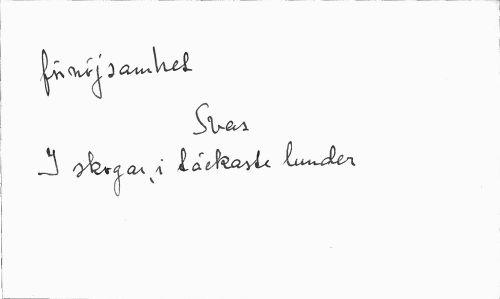 förnöjsamhet
Svas
I skogar, i täckaste lunder